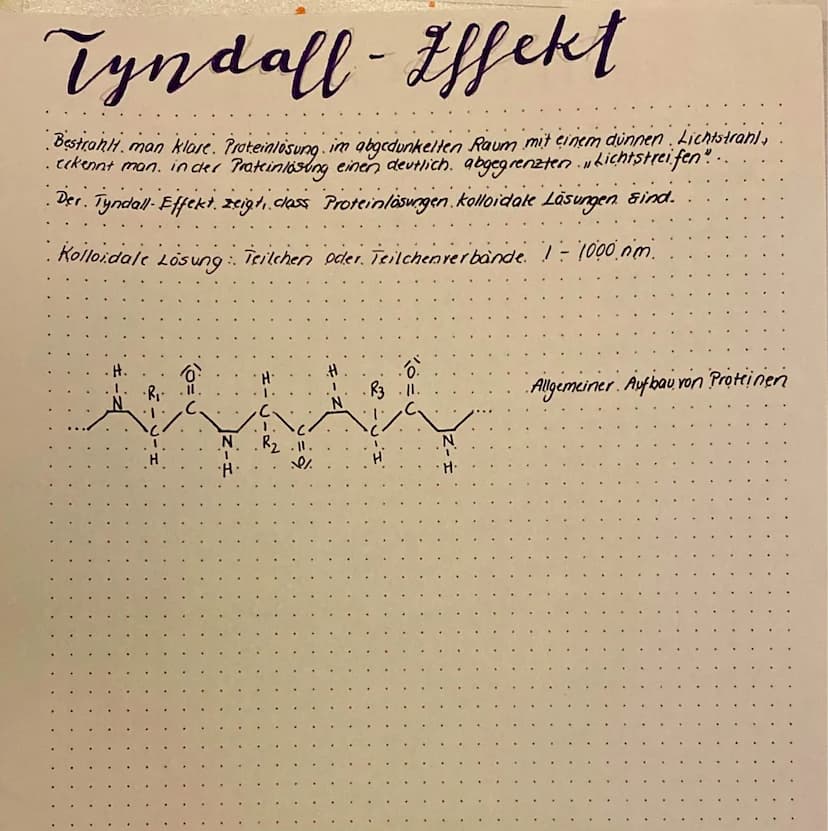 Tyndall-Effekt
Bestrahlt man klare Proteinlösung im abgedunkelten Raum mit einem dünnen Lichtstrahl,
erkennt man in der Proteinlösung einen deutlich abgegrenzten „Lichtstreifen".
Der Tyndall-Effekt zeigt, dass Proteinlösungen kolloidale Lösungen sind.
Kolloidale Lösung: Teilchen oder Teilchenverbände 1 - 1000 nm.
H O H H O
N R1 C C N R3 C
Allgemeiner Aufbau von Proteinen
... C N R2 C C N ...
H H O H H